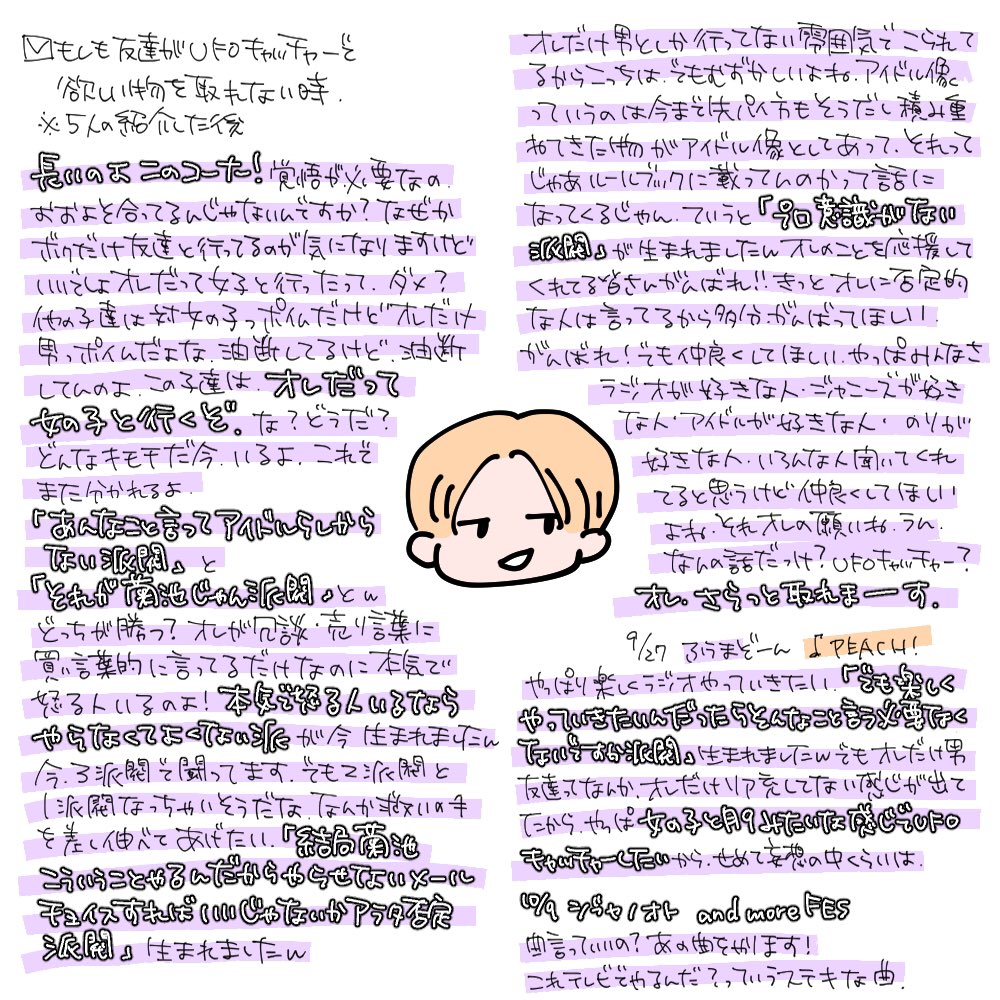 ✉もしも友達がUFOキャッチャーで
欲しい物を取れない時.
※5人の紹介した後
長いのよ このコーナー! 覚悟が必要なの.
おおよそ合ってるんじゃないんですか?なぜか
ボクだけ友達と行ってるのが気になりますけど
いいでしょオレだって女子と行ったって.ダメ?
他の子達は対女の子っポイんだけどオレだけ
男っポイんだよな.油断してるけど.油断
してんのよ.この子達は.オレだって
女の子と行くぞ. な?どうだ?
どんなキモチだ今.いるよ.これで
また分かれるよ.
「あんなこと言ってアイドルらしから
ない派閥」と
「それが菊池じゃん派閥」とw
どっちが勝つ?オレが冗談・売り言葉に
買い言葉的に言ってるだけなのに本気で
怒る人いるのよ!本気で怒る人いるなら
やらなくてよくない派が今 生まれましたw
今.3派閥で闘ってます.でも2派閥と
1派閥なっちゃいそうだな.なんか救いの手
を差し伸べてあげたい.「結局菊池
こういうことやるんだからやらせないメール
チョイスすればいいじゃないかアラタ否定
派閥」生まれましたw
オレだけ男としか行ってない雰囲気でこられて
るからこっちは.でもむずかしいよね.アイドル像
っていうのは今まで先パイ方もそうだし積み重
ねてきた物がアイドル像としてあって.それって
じゃあルールブックに載ってんのかって話に
なってくるじゃん.ていうと「プロ意識がない
派閥」が生まれましたwオレのことを応援して
くれてる皆さんがんばれ!!きっとオレに否定的
な人は言ってるから多分.がんばってほしい.
がんばれ!でも仲良くしてほしい.やっぱみんなさ
ラジオが好きな人・ジャニーズが好き
な人・アイドルが好きな人・のりが
好きな人.いろんな人聞いてくれ
てると思うけど仲良くしてほしい
よね.それオレの願いね.うん.
なんの話だっけ?UFOキャッチャー?
オレ.さらっと取れまーーす.
9/27 ふうまぞーん ♪PEACH!
やっぱり楽しくラジオやっていきたい.「でも楽しく
やっていきたいんだったらそんなこと言う必要なく
ないですか派閥」生まれましたwでもオレだけ男
友達ってなんか.オレだけリア充してない感じが出て
たから.やっぱ女の子と月9みたいな感じでUFO
キャッチャーしたいから.せめて妄想の中くらいは.
10/9 ジャノオト and more FES
曲言っていいの?あの曲をやります!
これテレビでやるんだ?っていうステキな曲.